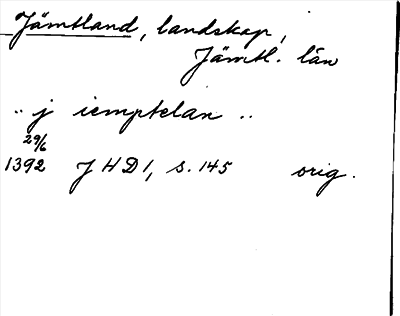 Jämtland, landskap,
Jämtl. län
.. j iemptelan ..
29/6
1392 JHD1, s. 145 orig.